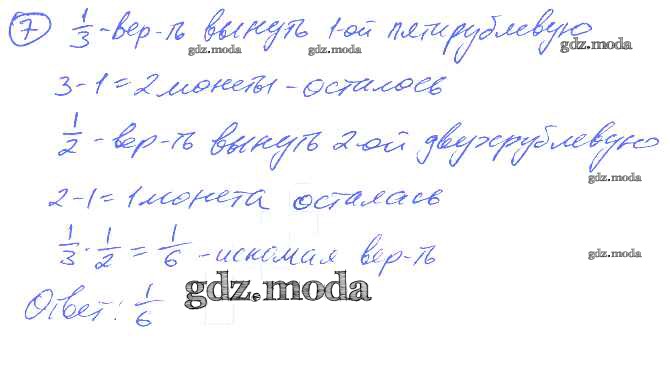 7 1/3 - вер-ть вынуть 1-ой пятирублевую
gdz.moda gdz.moda gdz.moda
3-1=2 монеты - осталось
1/2 - вер-ть вынуть 2-ой двухрублевую
gdz.moda
2-1=1 монета осталась
1/3 · 1/2 = 1/6 - искомая вер-ть
gdz.moda
gdz.moda
Ответ: 1/6